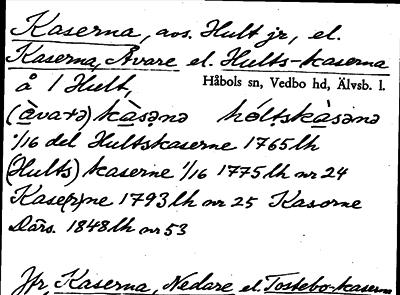 Kaserna, avs. Hult jr, el.
Kaserna, Åvare el. Hults-kaserna
å 1 Hult, Håbols sn, Vedbo hd, Älvsb. l.
(àvarə) kàsənə hóltskàsənə
1/16 del Hultskaserne 1765 lh
(Hults) kaserne 1/16 1775 lh nr 24
Kase(r)ne 1793 lh nr 25 Kasorne
Därs. 1848 lh nr 53
Jfr Kaserna, Nedare el. Tostebo-kaserna